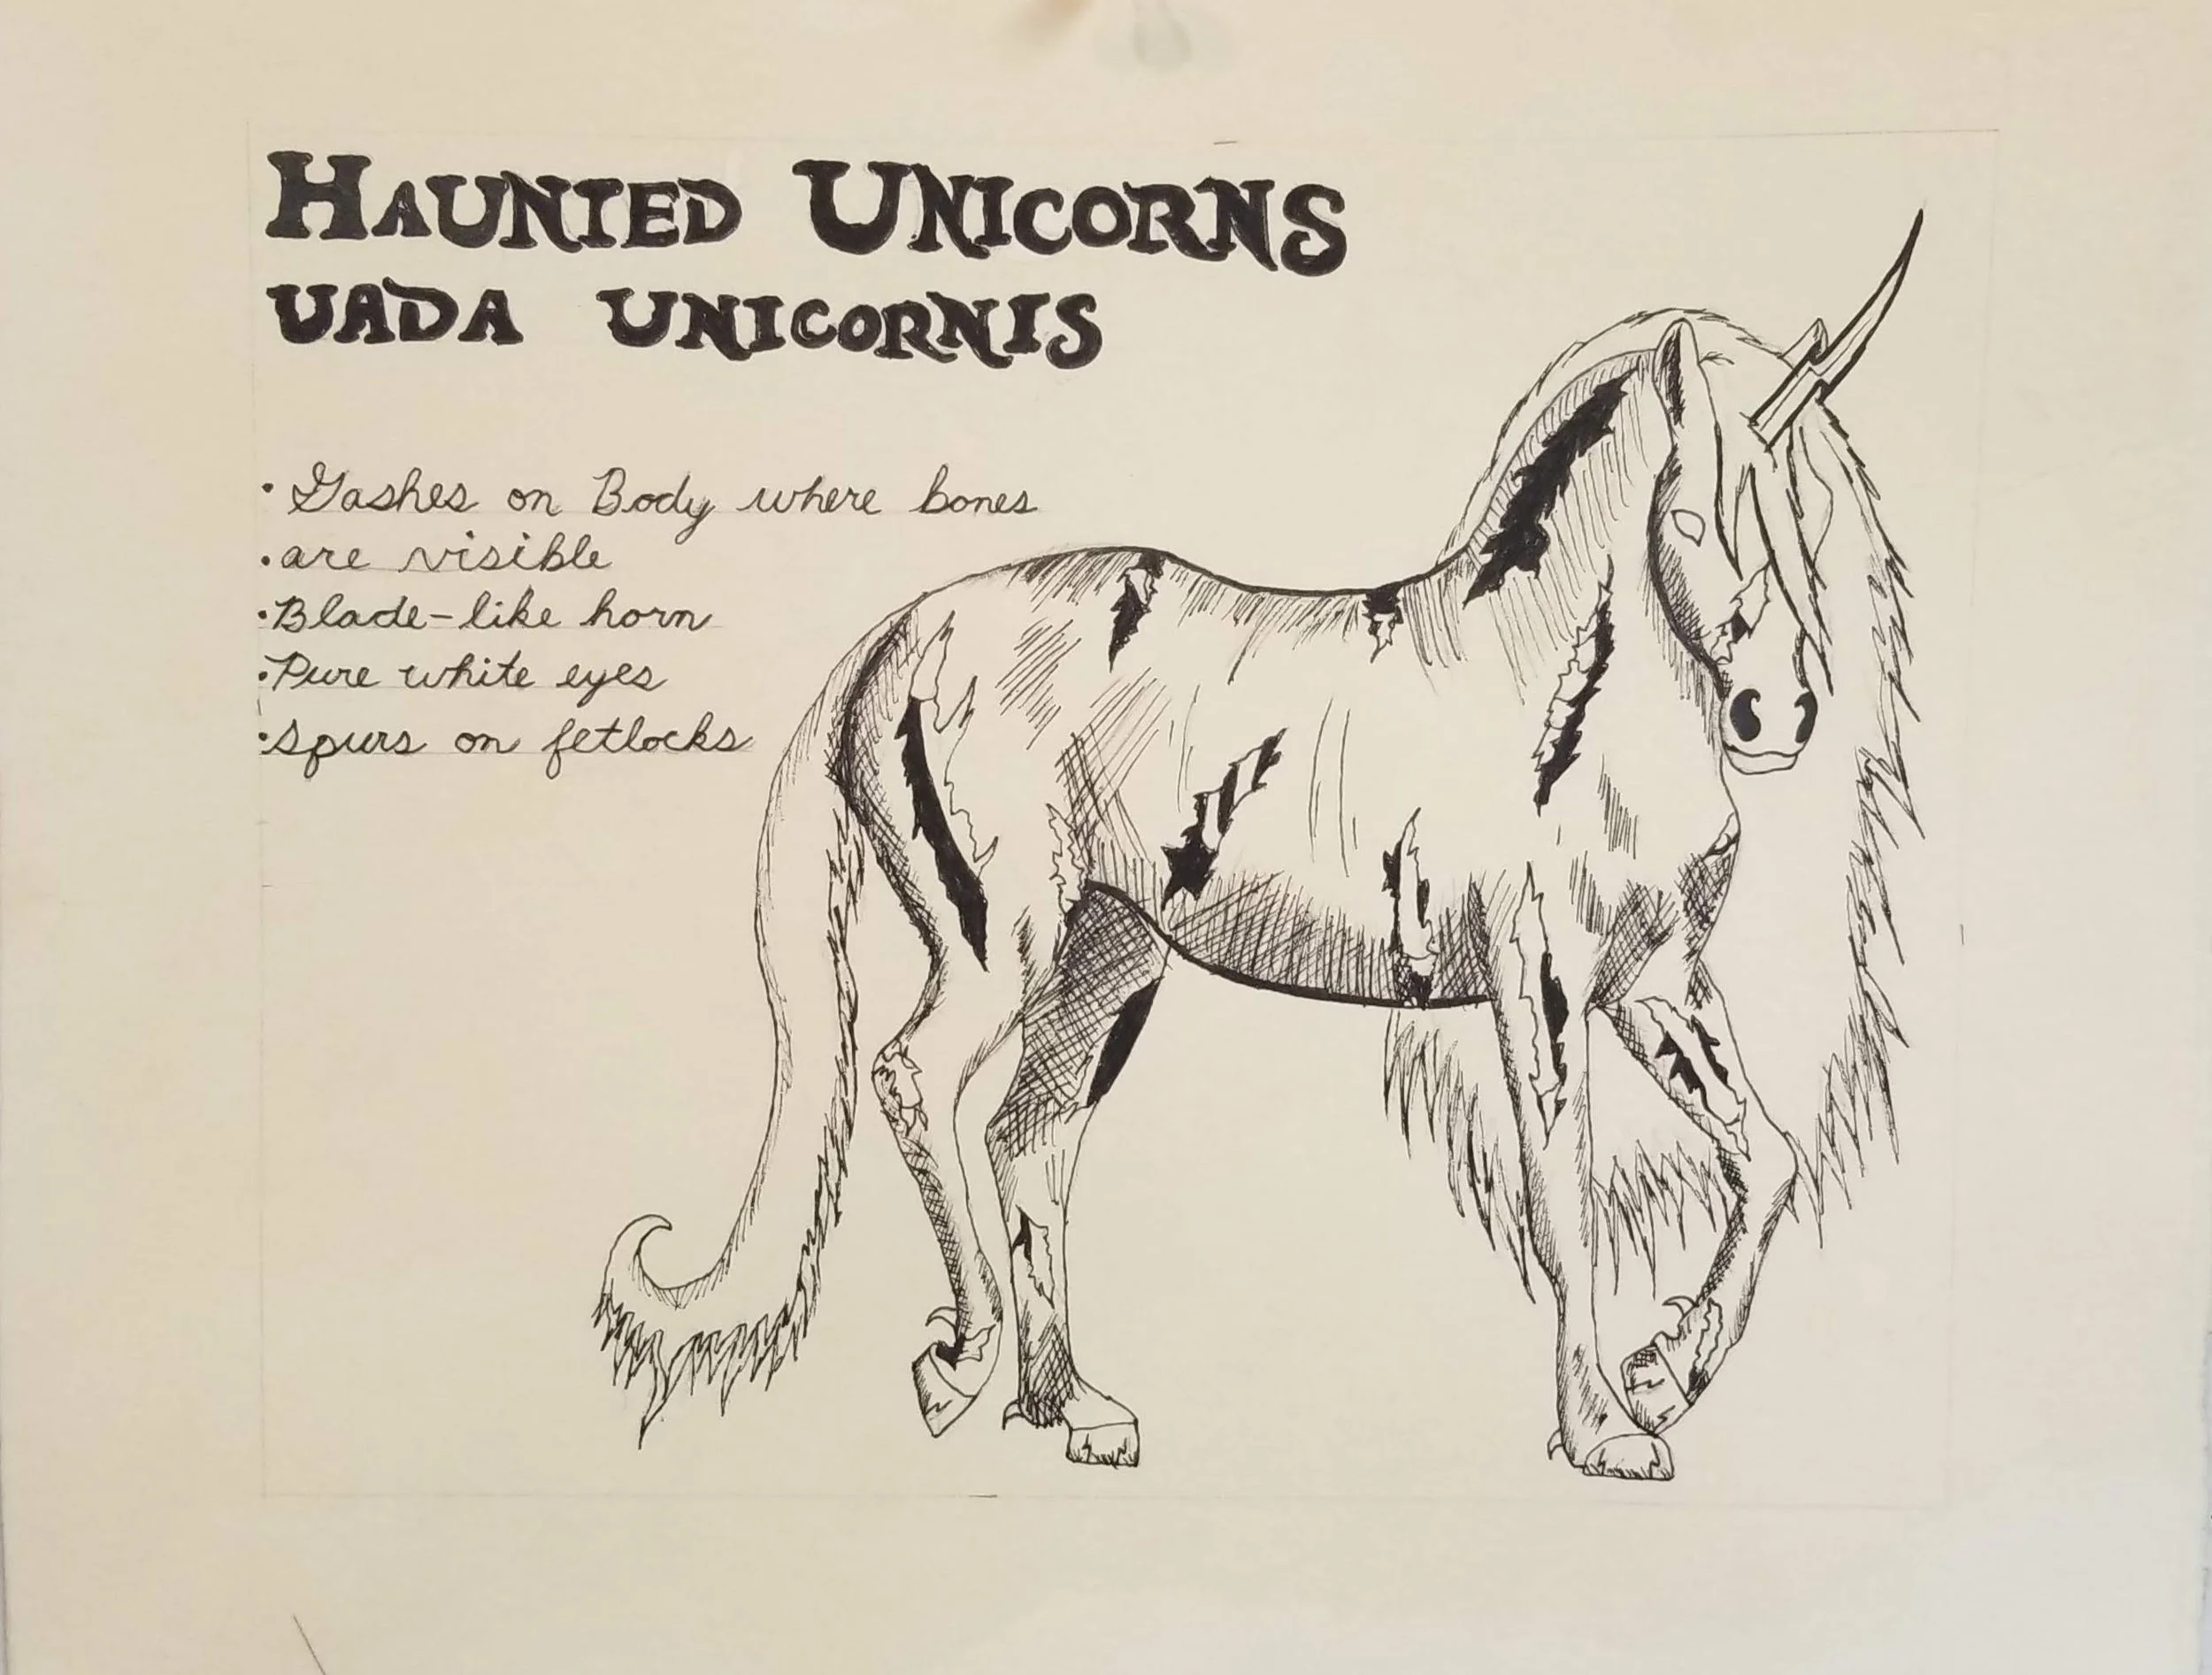 HAUNTED UNICORNS
UADA UNICORNIS
• Gashes on Body where bones
• are visible
• Blade-like horn
• Pure white eyes
• Spurs on fetlocks